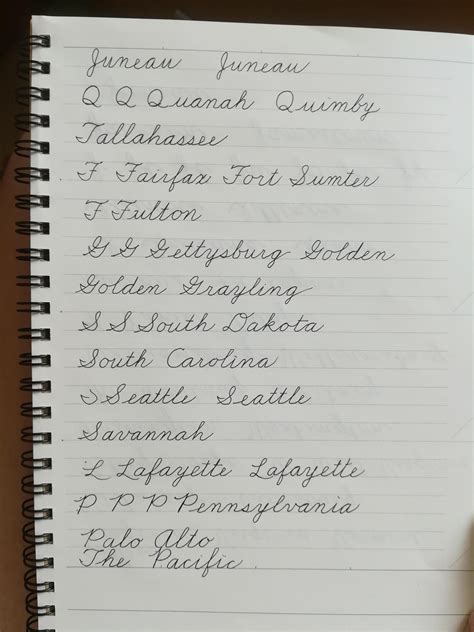 Juneau Juneau
Q Q Quanah Quimby
Tallahassee
F Fairfax Fort Sumter
F Fulton
G G Gettysburg Golden
Golden Grayling
S S South Dakota
South Carolina
S Seattle Seattle
Savannah
L Lafayette Lafayette
P P P Pennsylvania
Palo Alto
The Pacific